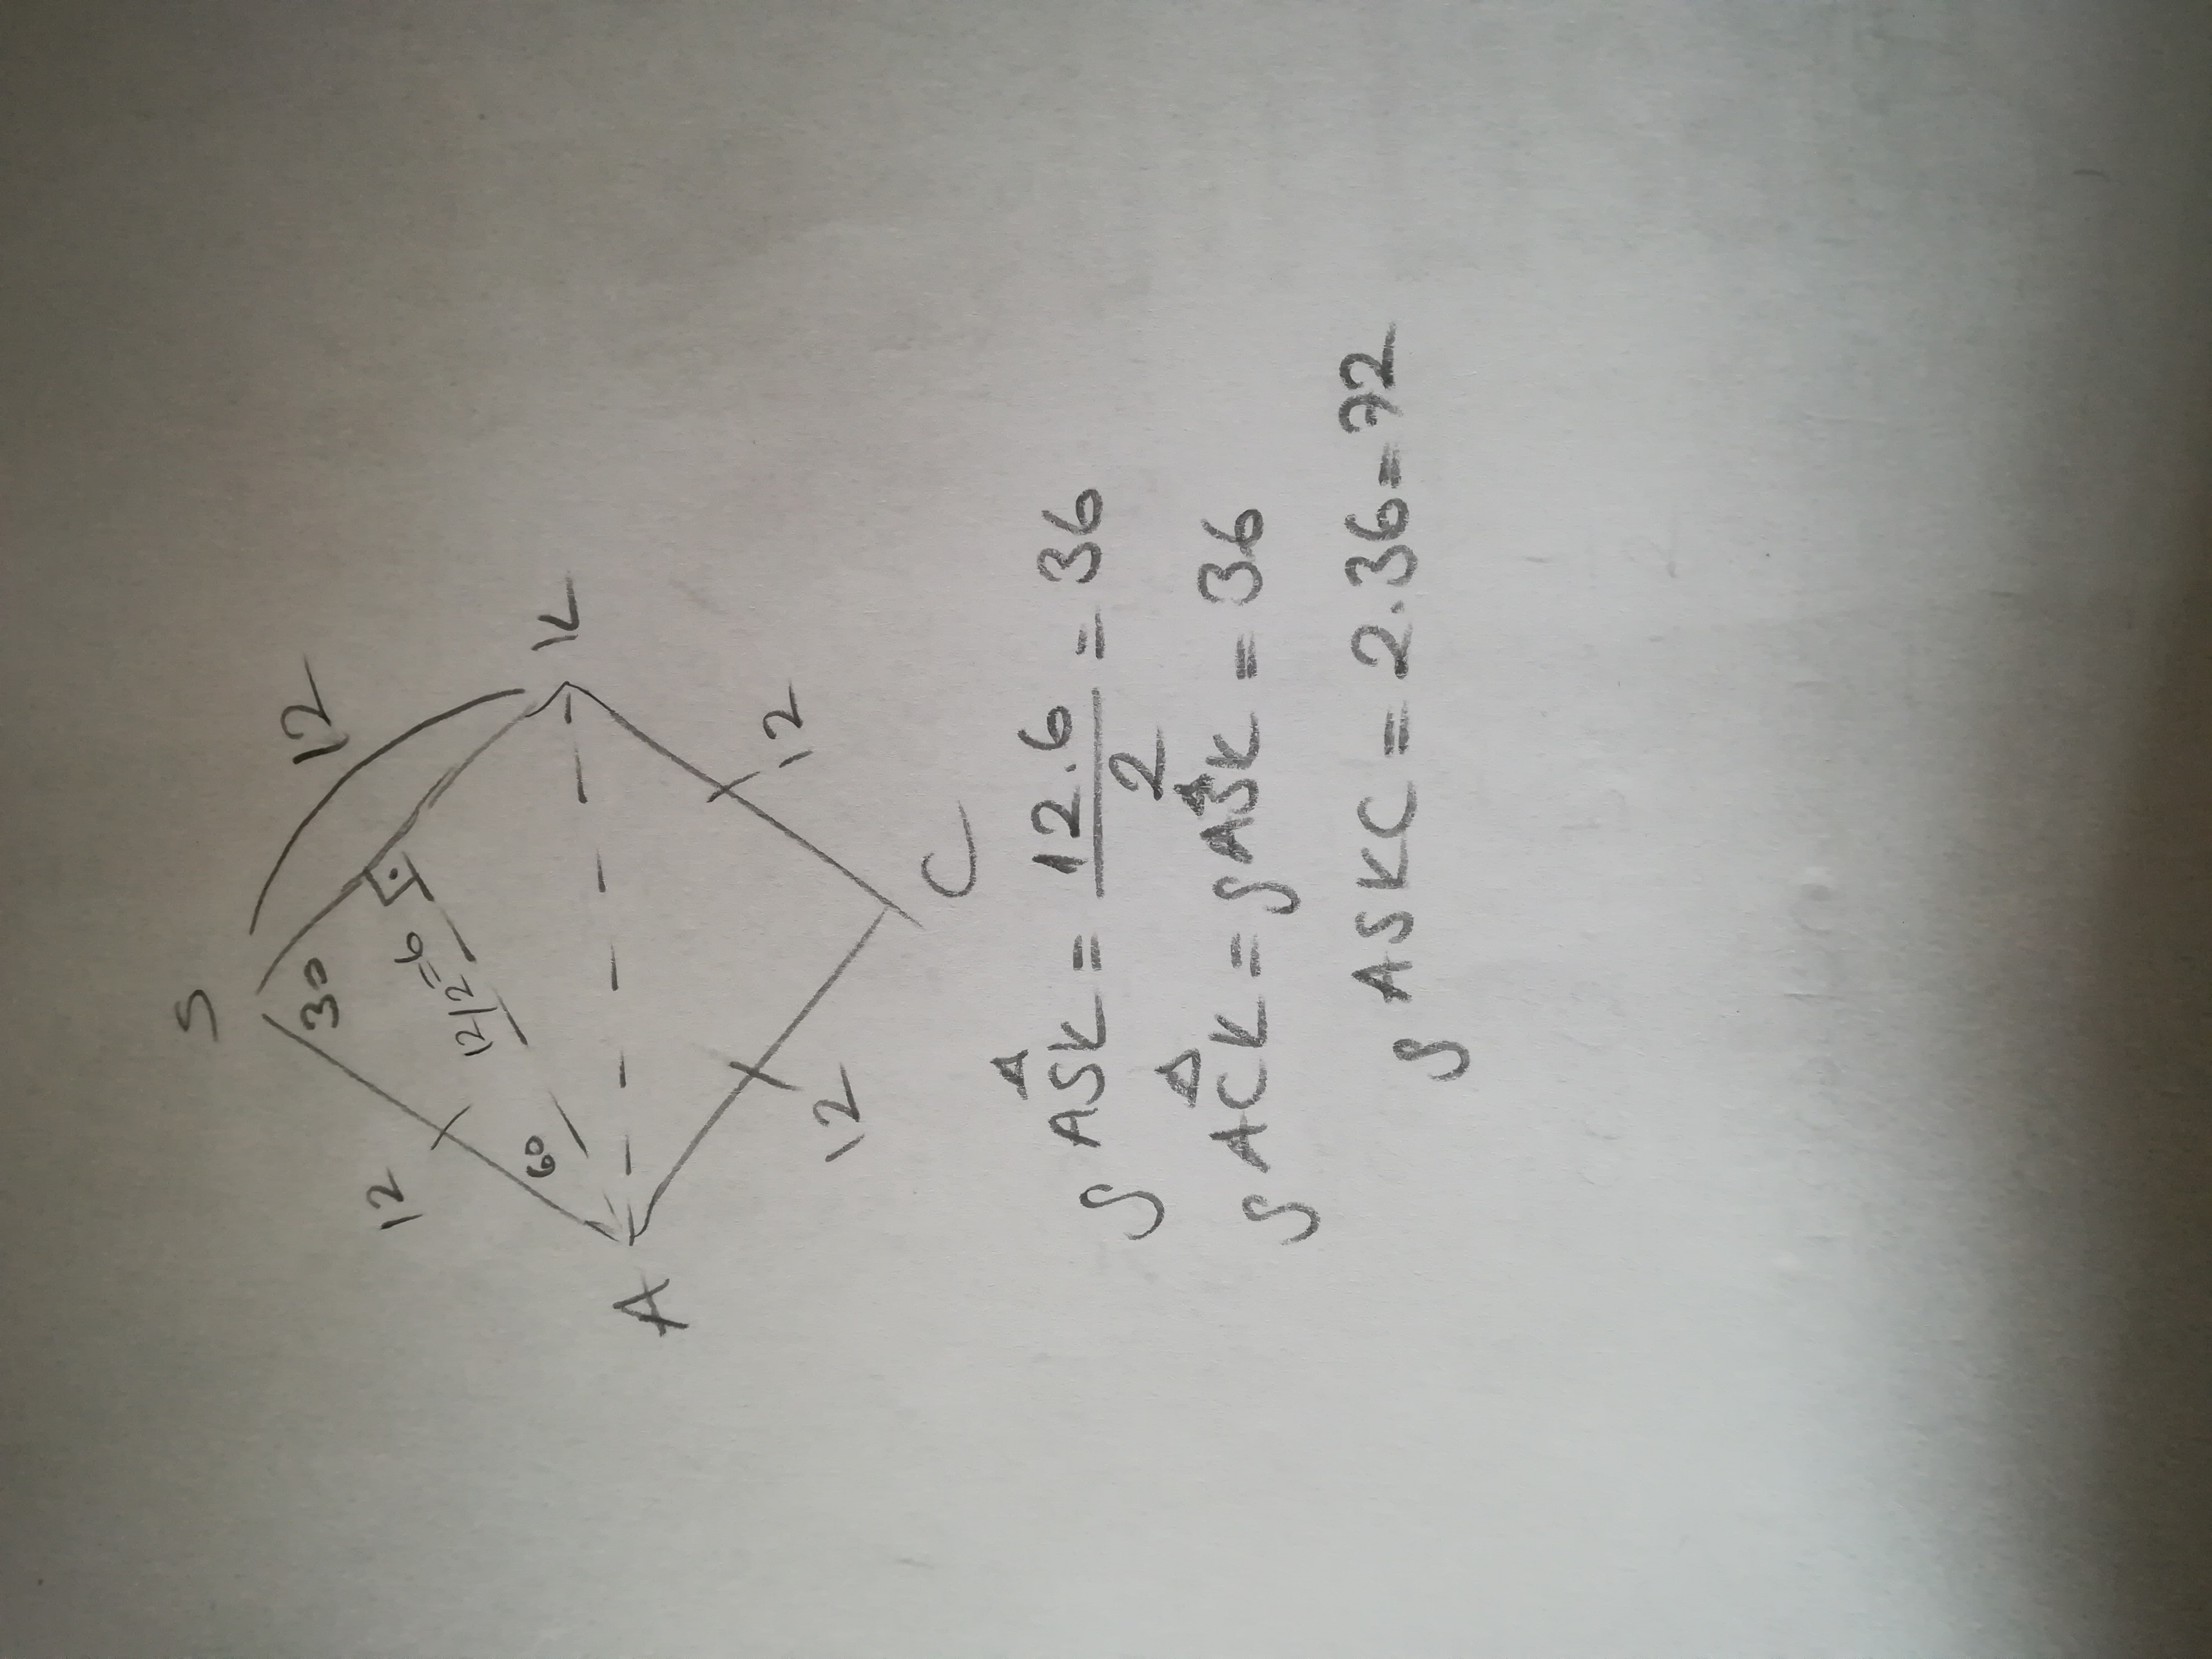 S
12
30
12
12/2=6
60
A
K
12
12
C
S ASK = 12.6/2 = 36
S ACK = S ASK = 36
S ASKC = 2.36=72